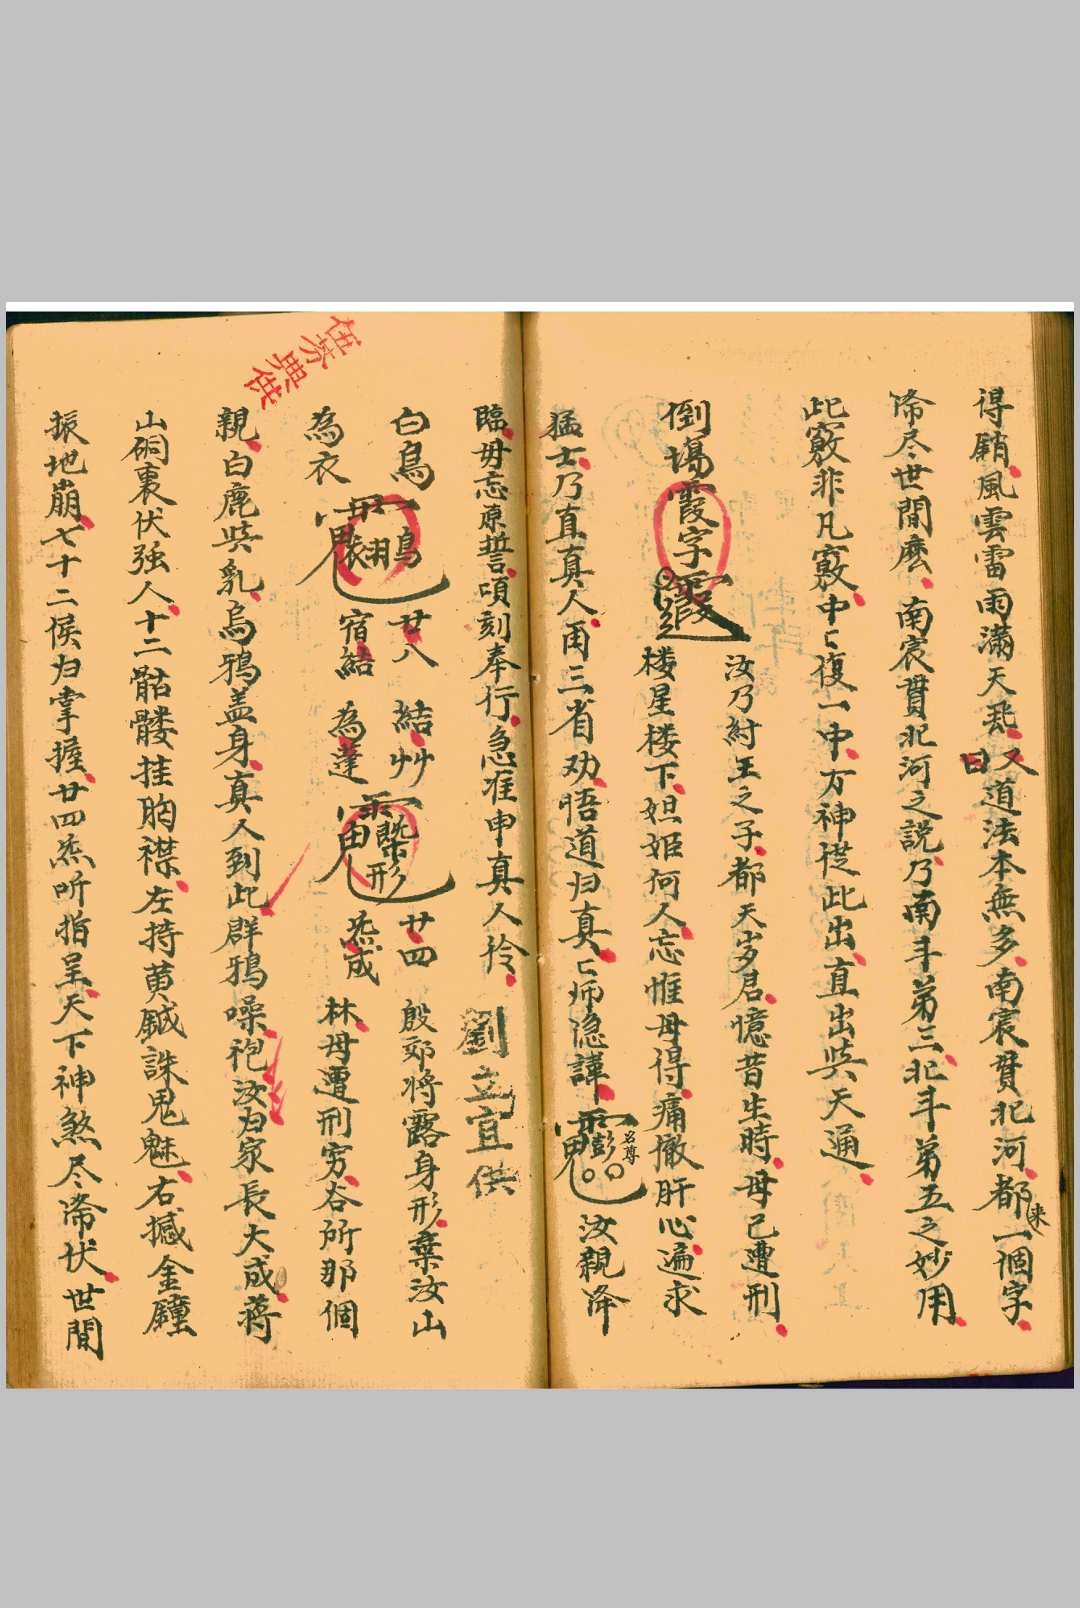 得鬧風雲雷雨滿天飛又曰道法本無多南宸貫北河都来一個字
滯尽世間麽南宸貫北河之說乃南斗弟三北斗弟五之妙用
此竅非凡竅中匕復一中万神従此出直出吴天通
倒場霞字
汝乃紂王之子都天岁君憶昔生時母已遭刑
楼星楼下妲姬何人忘惟母得痛徹肝心遍求
猛士乃直真人用三省劝悟道归真匕师隐諱
召尊
汝親泽
臨毋忘原誓頃刻奉行急准申真人拎
劉立宜供
白鳥 廿八 結艸 廿四 殷郊将露身形棄汝山
為衣 宿結 為薘 炁成 林母遭刑穷谷所那個
親白鹿吴乳烏鸦盖身真人到此群鸦噪袍汝为家長大成蒋
山硐裏伏強人十二骷髅挂胸襟左持黄鉞誅鬼魅右撼金鐘
振地崩七十二侯归掌握廿四炁听指呈天下神煞尽滯伏世間